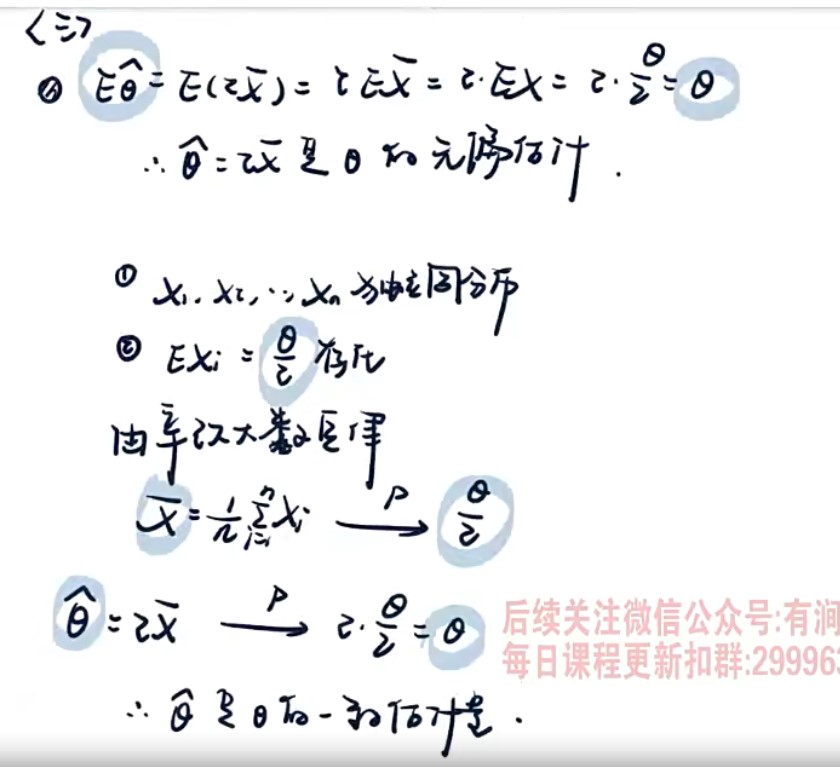 <三>
(1) Eθ̂ = E(2X̄) = 2EX̄ = 2·EX = 2·θ/2 = θ
∴ θ̂ = 2X̄ 是 θ 的 无偏估计.
① X₁, X₂, ⋯ Xₙ 独立同分布
② EXᵢ = θ/2 存在
由辛钦大数定律
X̄ = 1/n ∑ᵢ₌₁ⁿ Xᵢ —P→ θ/2
θ̂ = 2X̄ —P→ 2·θ/2 = θ
后续关注微信公众号:有涧
每日课程更新扣群:29996
∴ θ̂ 是 θ 的一致估计量.